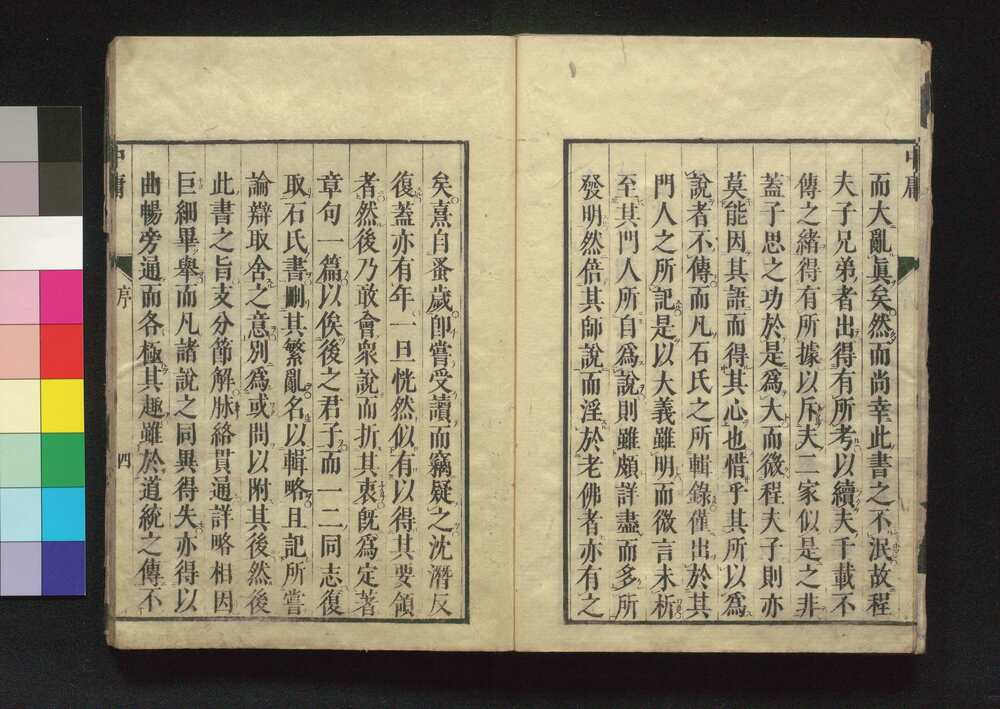 而大亂眞矣然而尚幸此書之不泯故程
夫子兄弟者出得有所考以續夫千載不
傳之緒得有所據以斥夫二家似是之非
蓋子思之功於是爲大而微程夫子則亦
莫能因其語而得其心也惜乎其所以爲
說者不傳而凡石氏之所輯錄僅出於其
門人之所記是以大義雖明而微言未析
至其門人所自爲說則雖頗詳盡而多所
發明然倍其師說而淫於老佛者亦有之
矣熹自蚤歲卽嘗受讀而竊疑之沈潛反
復蓋亦有年一旦恍然似有以得其要領
者然後乃敢會衆說而折其衷旣爲定著
章句一篇以俟後之君子而一二同志復
取石氏書刪其繁亂名以輯略且記所嘗
論辯取舍之意別爲或問以附其後然後
此書之旨支分節解脉絡貫通詳略相因
巨細畢舉而凡諸說之同異得失亦得以
曲暢旁通而各極其趣雖於道統之傳不
中庸
序
四